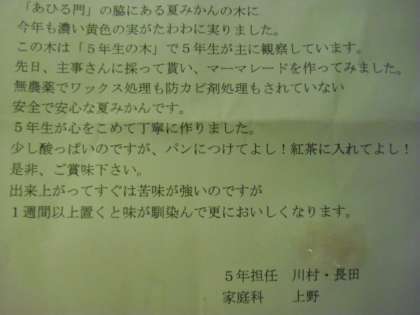 「あひる門」の脇にある夏みかんの木に
今年も濃い黄色の実がたわわに実りました。
この木は「５年生の木」で５年生が主に観察しています。
先日、主事さんに採って貰い、マーマレードを作ってみました。
無農薬でワックス処理も防カビ剤処理もされていない
安全で安心な夏みかんです。
５年生が心をこめて丁寧に作りました。
少し酸っぱいのですが、パンにつけてよし！紅茶に入れてよし！
是非、ご賞味下さい。
出来上がってすぐは苦味が強いのですが
１週間以上置くと味が馴染んで更においしくなります。
５年担任　川村・長田
家庭科　上野